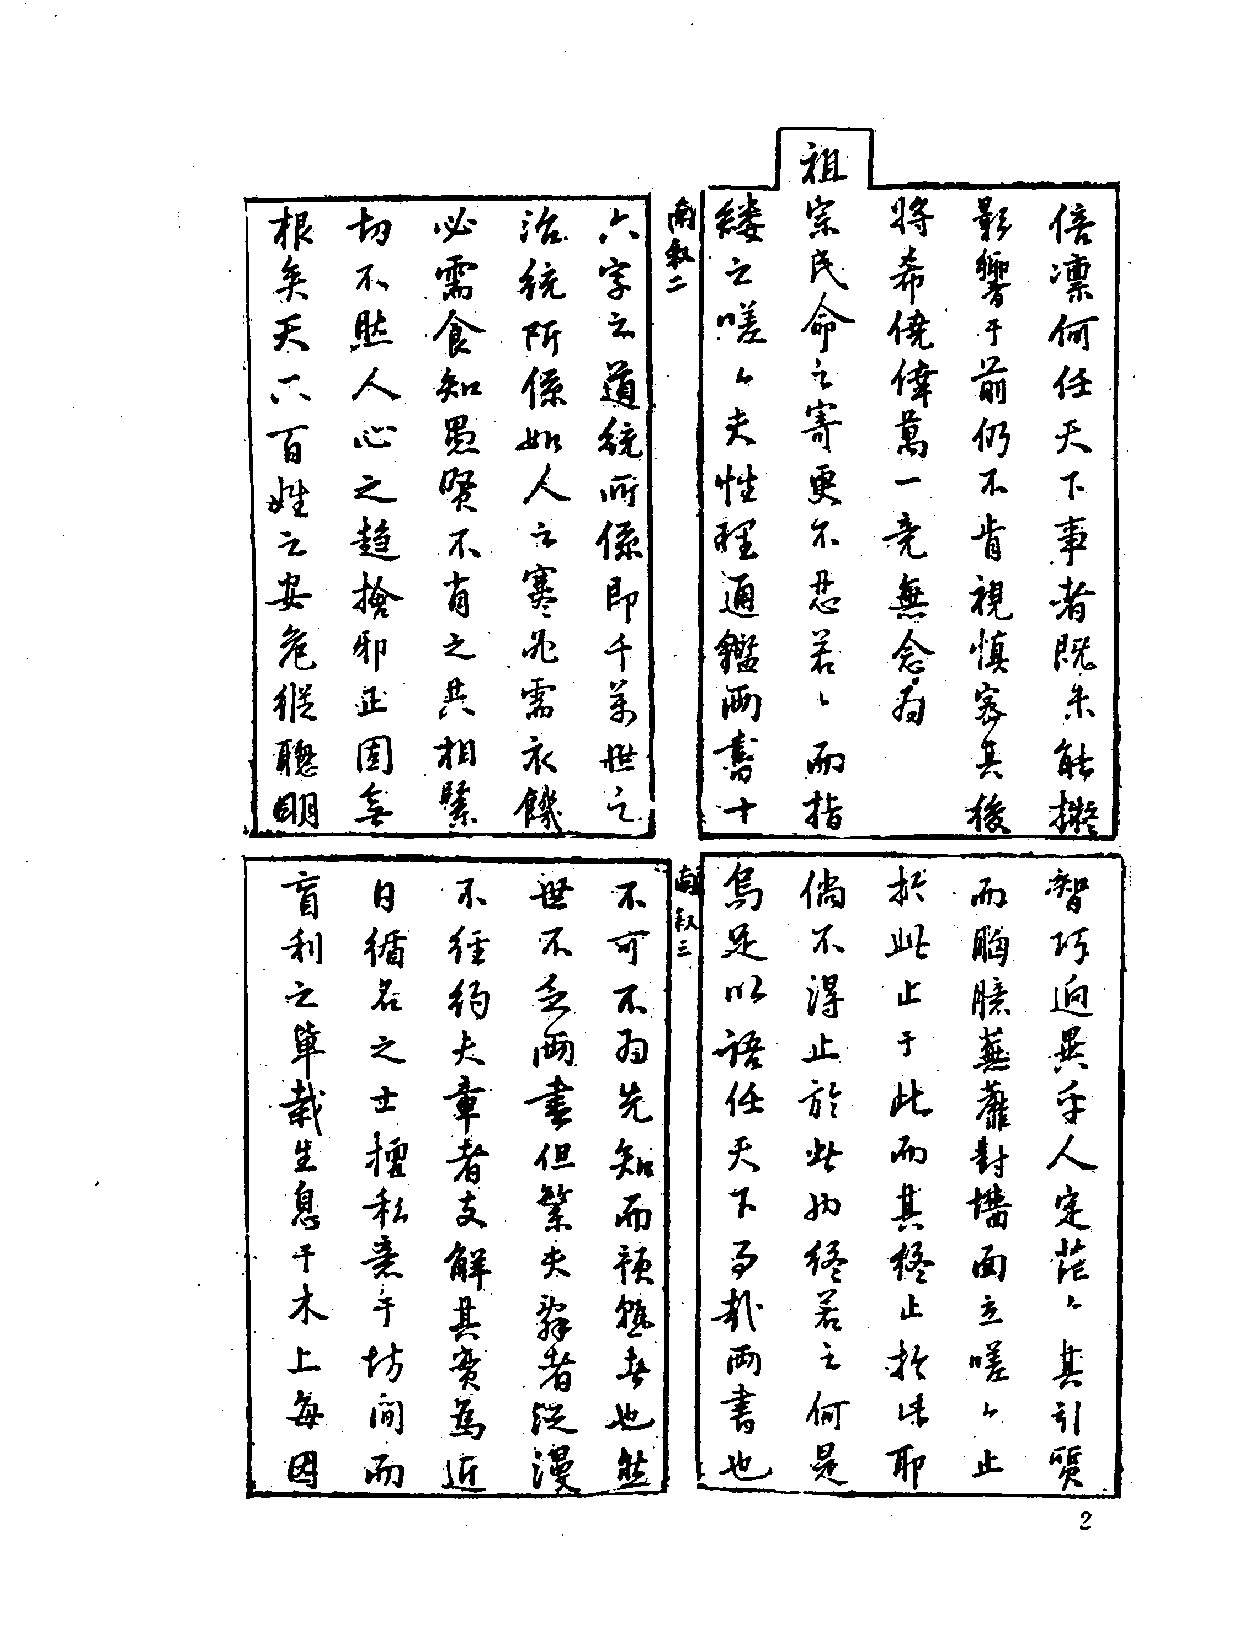 倍凜何任天下事者既未能擬
影響于前仍不肯視慎密其後
將希僥倖萬一竟無念為
祖宗民命之寄更不忍若〻而指
縷之嗟〻夫性理通鑑兩書十
南敘二
六字之道統所係即千萬世之
治統所係如人之寒必需衣饑
必需食知愚賢不肖之共相緊
切不然人心之趨捨邪正固無
根矣天下百姓之安危縱聰明
智巧迥異乎人定茫〻其引質
而胸臆蕪蘼對墻面立嗟〻止
於此止于此而其終止於此耶
倘不得止於此將終若之何是
烏足以語任天下事哉兩書也
南敘三
不可不為先知而預甄者也然
世不乏兩書但繁夫辭者從漫
不徑約夫章者支解其實為近
日循名之士擅私意乎坊間而
盲利之單裁生息于木上每因
2